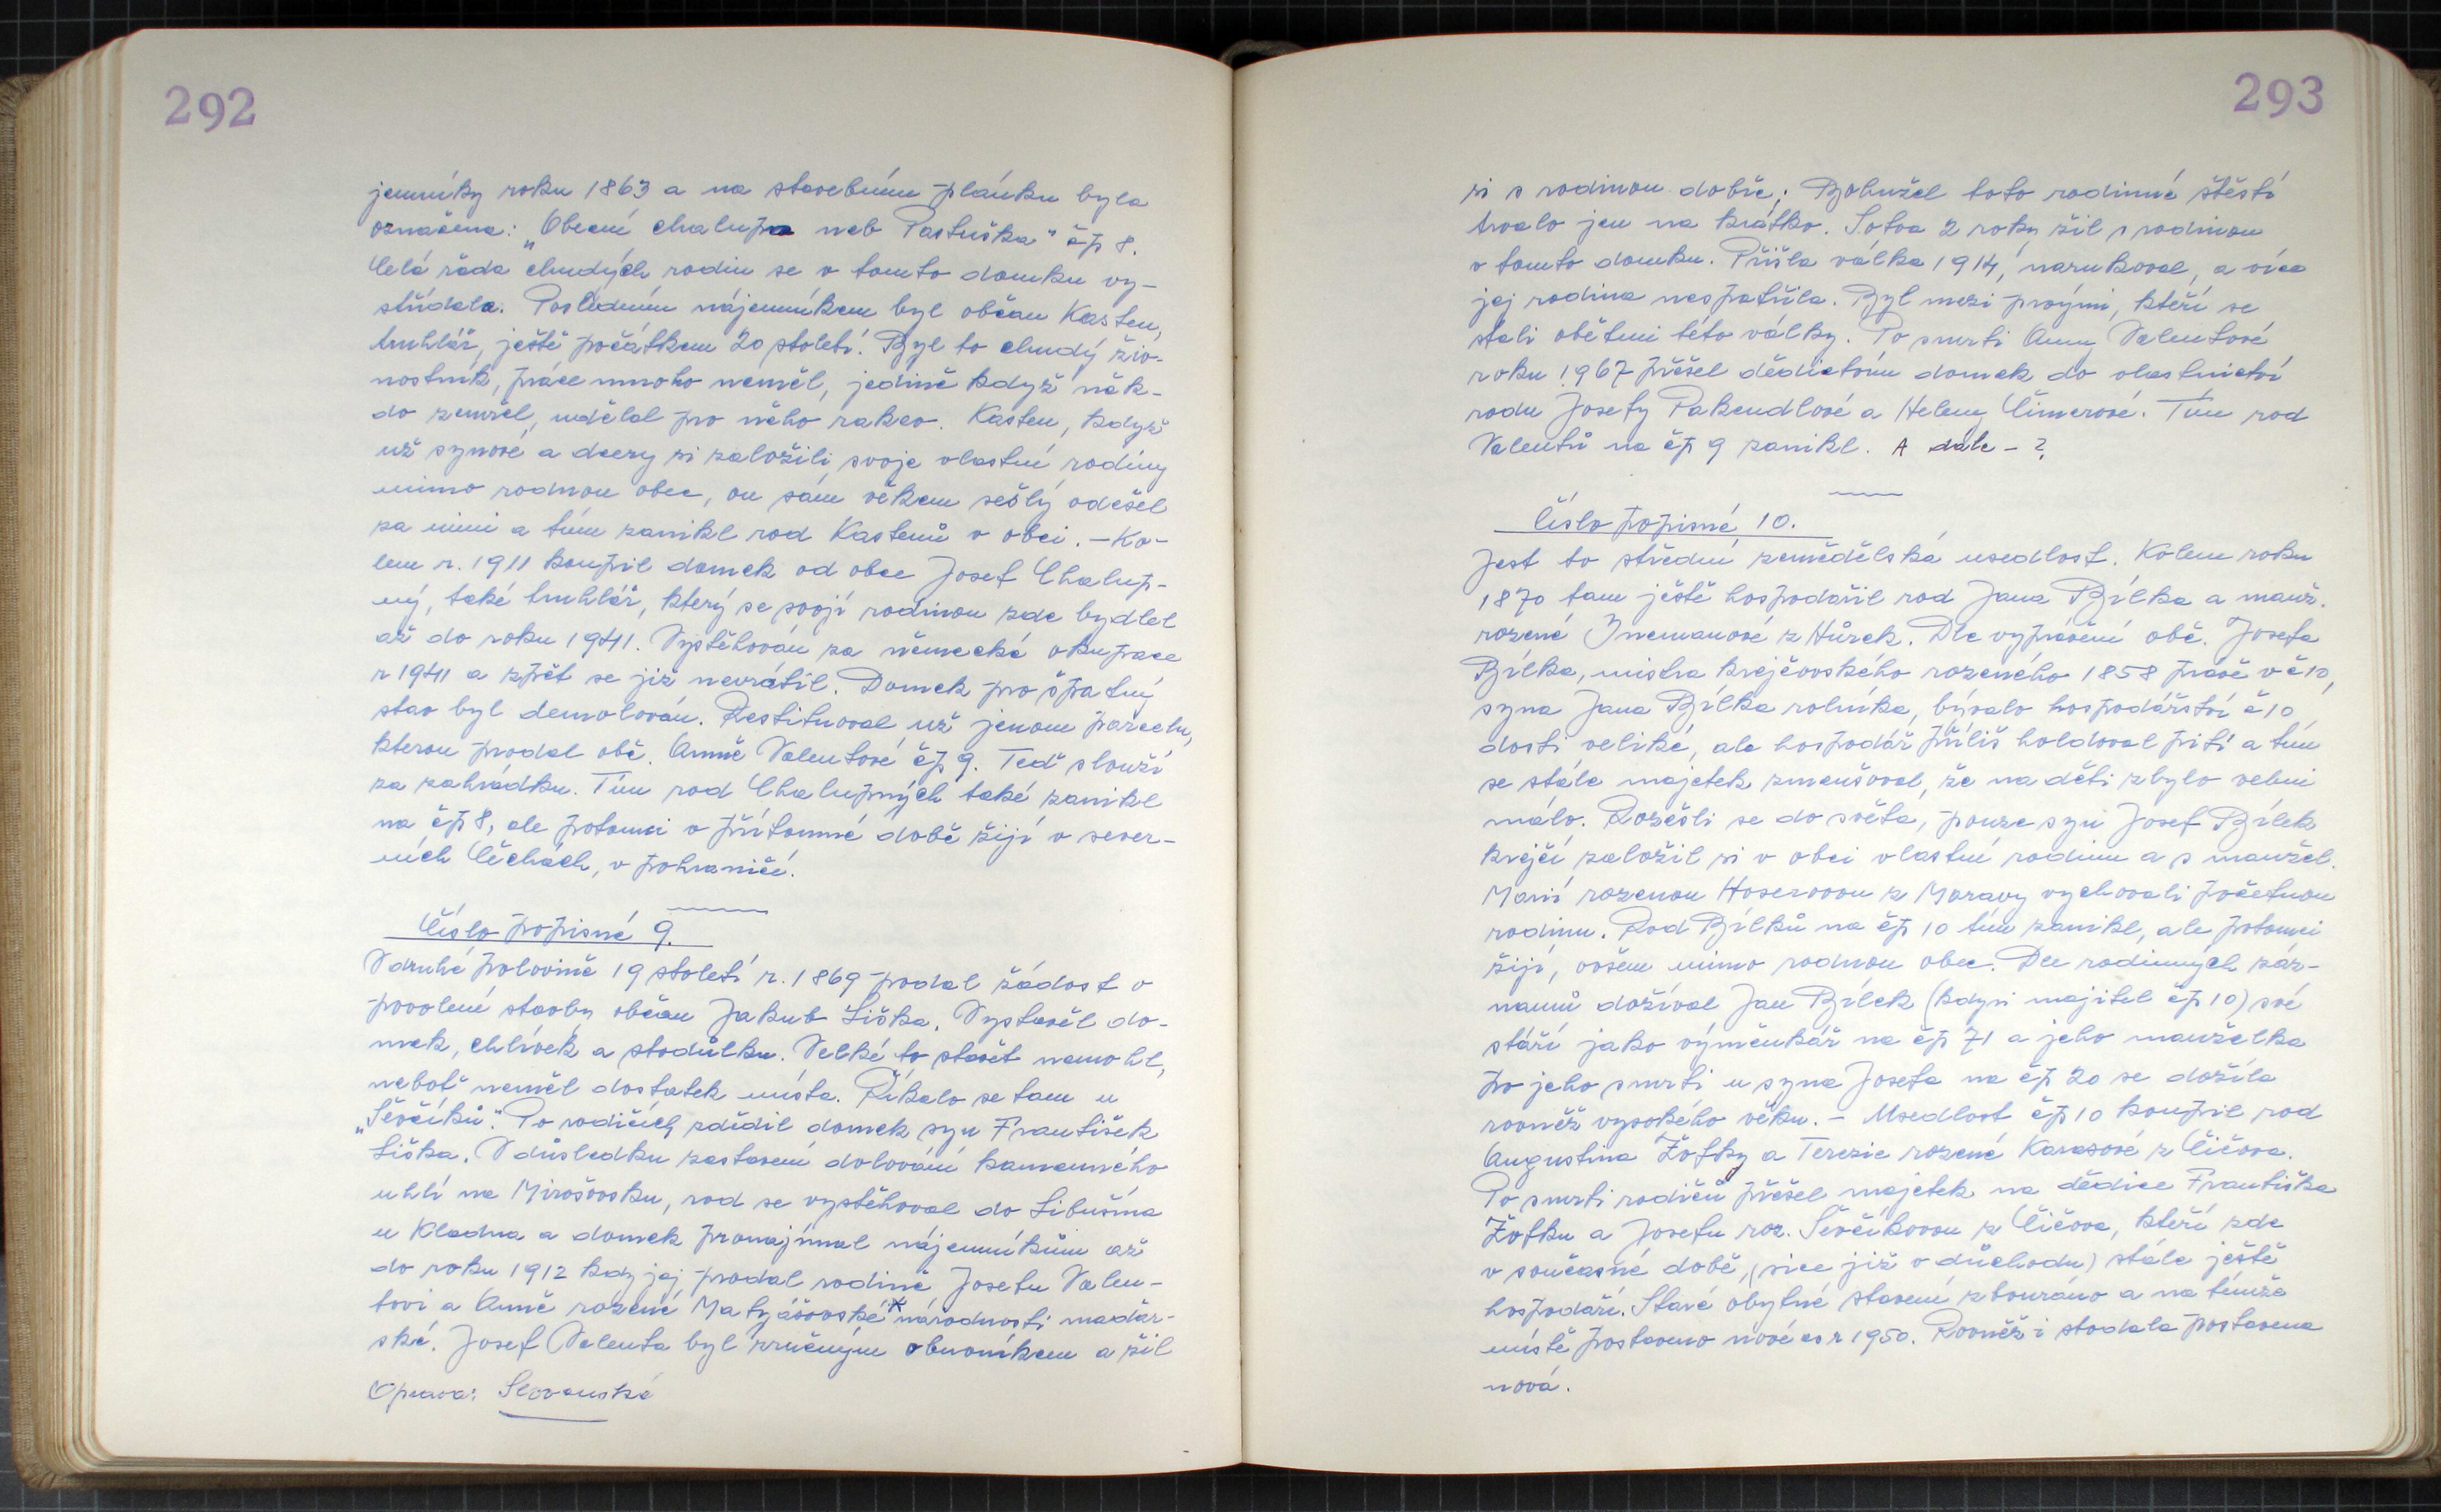 292
jemníky roku 1863 a na stavebním plánku byla
označena: „Obecní chalupa neb Pastuška" čp 8.
Celá řada chudých rodin se v tomto domku vy-
střídala. Posledním nájemníkem byl občan Kasten,
truhlář, ještě počátkem 20 století. Byl to chudý živ-
nostník, práce mnoho neměl, jedině když něk-
do zemřel, udělal pro něho rakev. Kasten, když
už synové a dcery si založili svoje vlastní rodiny
mimo rodnou obec, on sám věkem sešlý odešel
za nimi a tím zanikl rod Kastenů v obci. – Ko-
lem r. 1911 koupil domek od obce Josef Chalup-
ný, také truhlář, který se svojí rodinou zde bydlel
až do roku 1941. Vystěhován za německé okupace
r 1941 a zpět se již nevrátil. Domek pro špatný
stav byl demolován. Restituoval už jenom parcelu,
kterou prodal obč. Anně Valentové čp 9. Teď slouží
za zahrádku. Tím rod Chalupných také zanikl
na čp 8, ale potomci v přítomné době žijí v sever-
ních Čechách, v pohraničí.
Číslo popisné 9.
V druhé polovině 19 století r. 1869 podal žádost o
povolení stavby občan Jakub Liška. Vystavěl do-
mek, chlívek a stodůlku. Velké to stavět nemohl,
neboť neměl dostatek místa. Říkalo se tam u
„Ševčíků". Po rodičích zdědil domek syn František
Liška. V důsledku zastavení dolování kamenného
uhlí na Mirošovsku, rod se vystěhoval do Libušína
u Kladna a domek pronajímal nájemníkům až
do roku 1912 kdy jej prodal rodině Josefu Valen-
tovi a Anně rozené Matyášovské * národnosti maďar-
ské. Josef Valenta byl zručným obuvníkem a žil
Oprava: Slovenské
293
si s rodinou dobře; Bohužel toto rodinné štěstí
trvalo jen na krátko. Sotva 2 roky žil s rodinou
v tomto domku. Přišla válka 1914, narukoval, a více
jej rodina nespatřila. Byl mezi prvými, kteří se
stali obětmi této války. Po smrti Anny Valentové
roku 1967 přešel dědictvím domek do vlastnictví
rodu Josefy Pakendlové a Heleny Cimerové. Tím rod
Valentů na čp 9 zanikl. A dále - ?
Číslo popisné 10.
Jest to střední zemědělská usedlost. Kolem roku
1870 tam ještě hospodařil rod Jana Bílka a manž.
rozené Znemanové z Hůrek. Dle vyprávění obč. Josefa
Bílka, mistra krejčovského rozeného 1858 právě v č 10,
syna Jana Bílka rolníka, bývalo hospodářství č 10
dosti veliké, ale hospodář příliš holdoval pití a tím
se stále majetek zmenšoval, že na děti zbylo velmi
málo. Rozešli se do světa, pouze syn Josef Bílek
krejčí založil si v obci vlastní rodinu a s manžel.
Marií rozenou Hoserovou z Moravy vychovali početnou
rodinu. Rod Bílků na čp 10 tím zanikl, ale potomci
žijí, ovšem mimo rodnou obec. Dle rodinných záz-
namů dožíval Jan Bílek (kdysi majitel čp 10) své
stáří jako výměnkář na čp 71 a jeho manželka
po jeho smrti u syna Josefa na čp 20 se dožila
rovněž vysokého věku. – Usedlost čp 10 koupil rod
Augustina Žofky a Terezie rozené Karasové z Číčova.
Po smrti rodičů přešel majetek na dědice Františka
Žofku a Josefu roz. Ševčíkovou z Číčova, kteří zde
v současné době, (sice již v důchodu) stále ještě
hospodaří. Staré obytné stavení zbouráno a na témže
místě postaveno nové as r 1950. Rovněž i stodola postavena
nová.